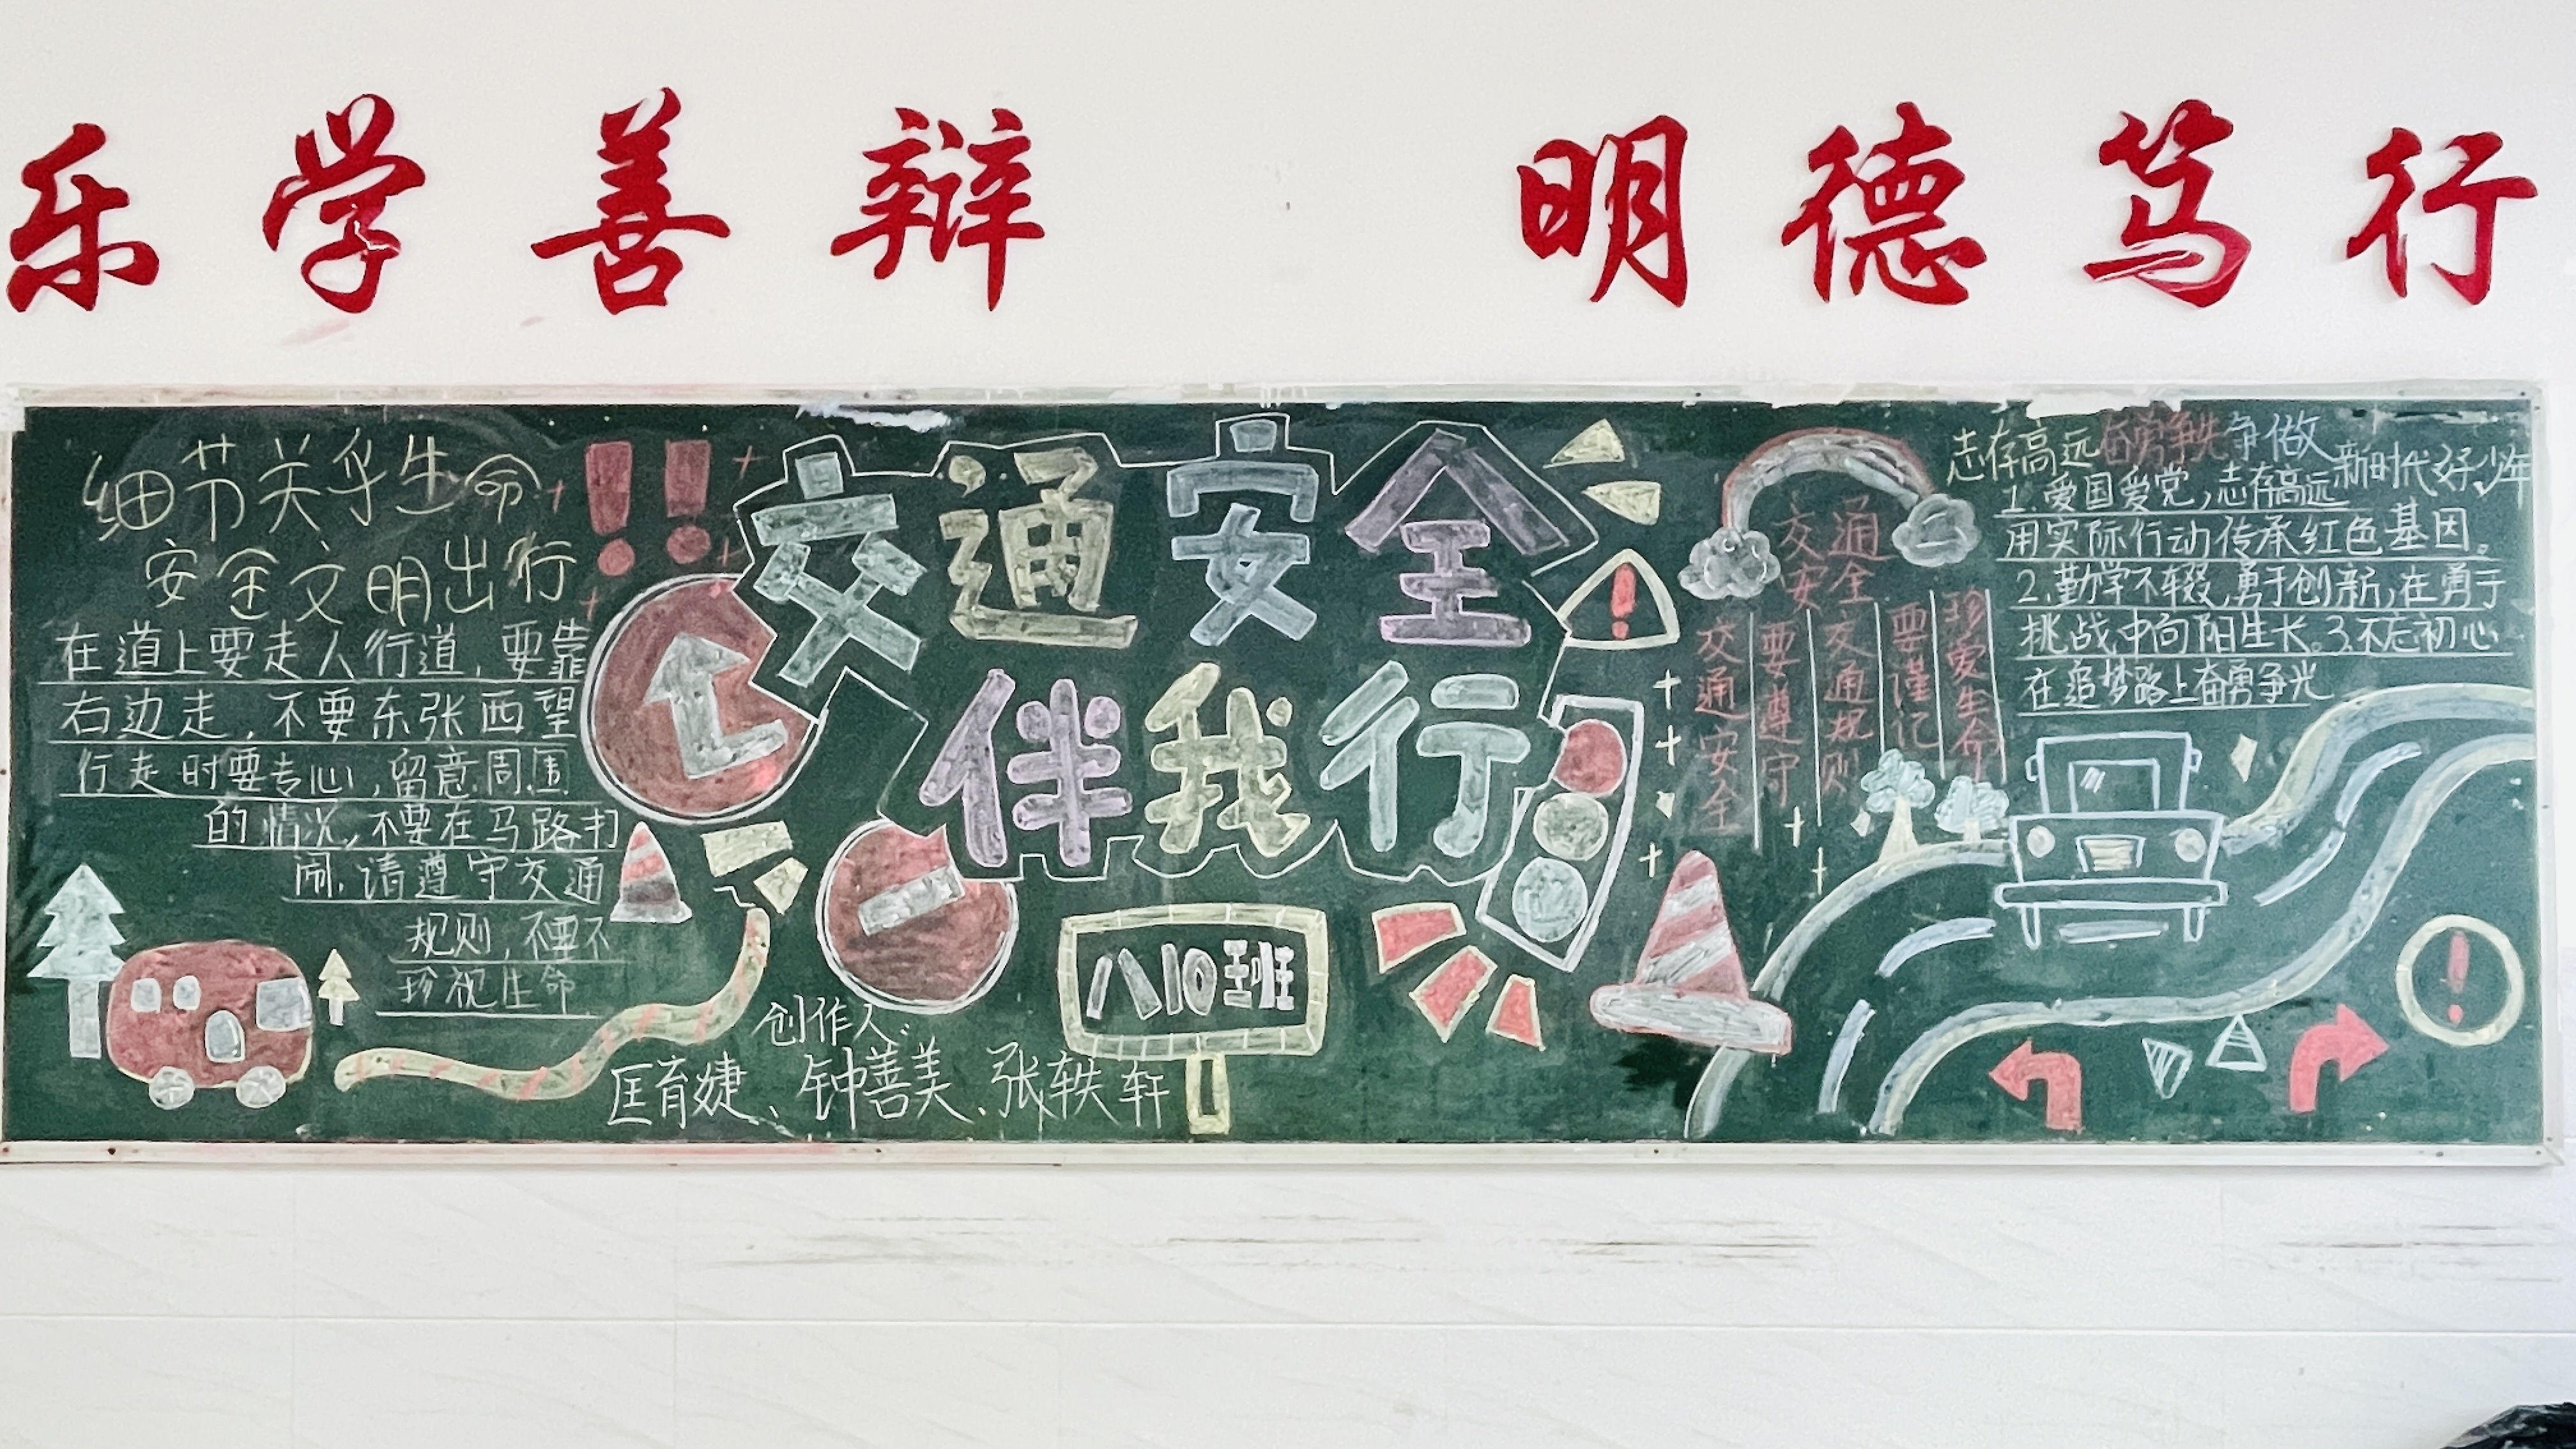 乐学善辩 明德笃行
细节关乎生命
安全文明出行
在道上要走人行道，要靠
右边走，不要东张西望
行走时要专心，留意周围
的情况，不要在马路打
闹，请遵守交通
规则，不要不
珍视生命
交通安全
伴我行
八10班
创作人：
匡育婕、钟善美、张轶轩
交通
安全
交通安全
要遵守
交通规则
要谨记
珍爱生命
志存高远奋勇争先争做新时代好少年
1.爱国爱党，志存高远
用实际行动传承红色基因。
2.勤学不辍，勇于创新，在勇于
挑战中向阳生长。3.不忘初心
在追梦路上奋勇争光